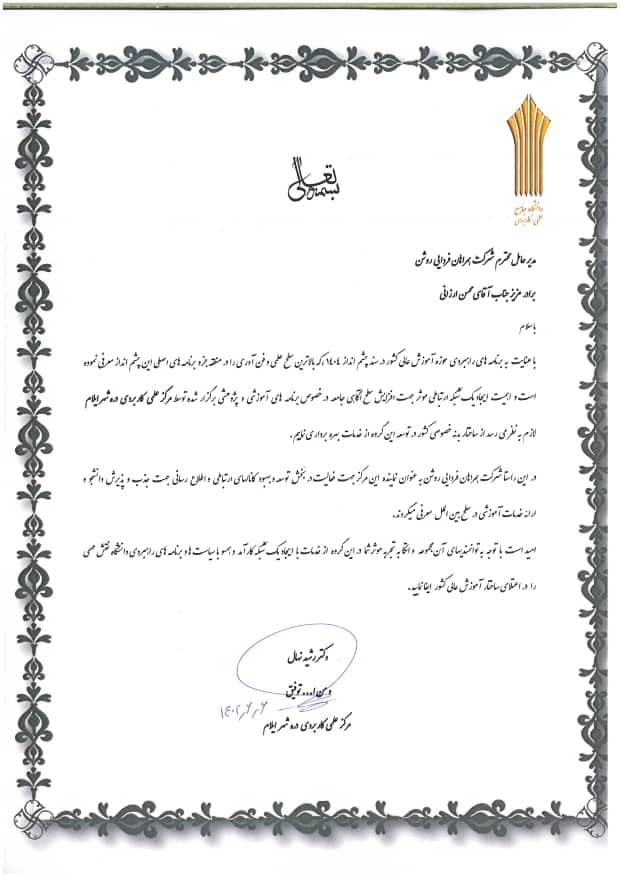 بسمه تعالی
دانشگاه جامع
علمی کاربردی
مدیر عامل محترم شرکت همراهان فردایی روشن
برادر عزیز جناب آقای محسن ارزانی
با سلام
با عنایت به برنامه های راهبردی حوزه آموزش عالی کشور در سند چشم انداز ۱۴۰۴ که بالاترین سطح علمی و فن آوری را در منطقه جزء برنامه های اصلی این چشم انداز معرفی نموده
است و اهمیت ایجاد یک شبکه ارتباطی موثر جهت افزایش سطح آگاهی جامعه در خصوص برنامه های آموزشی و پژوهشی برگزار شده توسط مرکز علمی کاربردی دره شهر ایلام
لازم به نظر می رسد از ساختار بدنه خصوصی کشور در توسعه این گروه از خدمات بهره برداری نماییم.
در این راستا شرکت همراهان فردایی روشن به عنوان نماینده این مرکز جهت فعالیت در بخش توسعه و بهبود کانالهای ارتباطی و اطلاع رسانی جهت جذب و پذیرش دانشجو و
ارائه خدمات آموزشی در سطح بین الملل معرفی میگردند.
امید است با توجه به توانمندیهای آن مجموعه و اتکا به تجربه موثر شما در این گروه از خدمات با ایجاد یک شبکه کارآمد و همسو با سیاست ها و برنامه های راهبردی دانشگاه نقش مهمی
را در اعتلای ساختار آموزش عالی کشور ایفا نمایید.
دکتر رشید نهال
و من ا... توفیق
۱۴۰۲٫۶٫۶
مرکز علمی کاربردی دره شهر ایلام